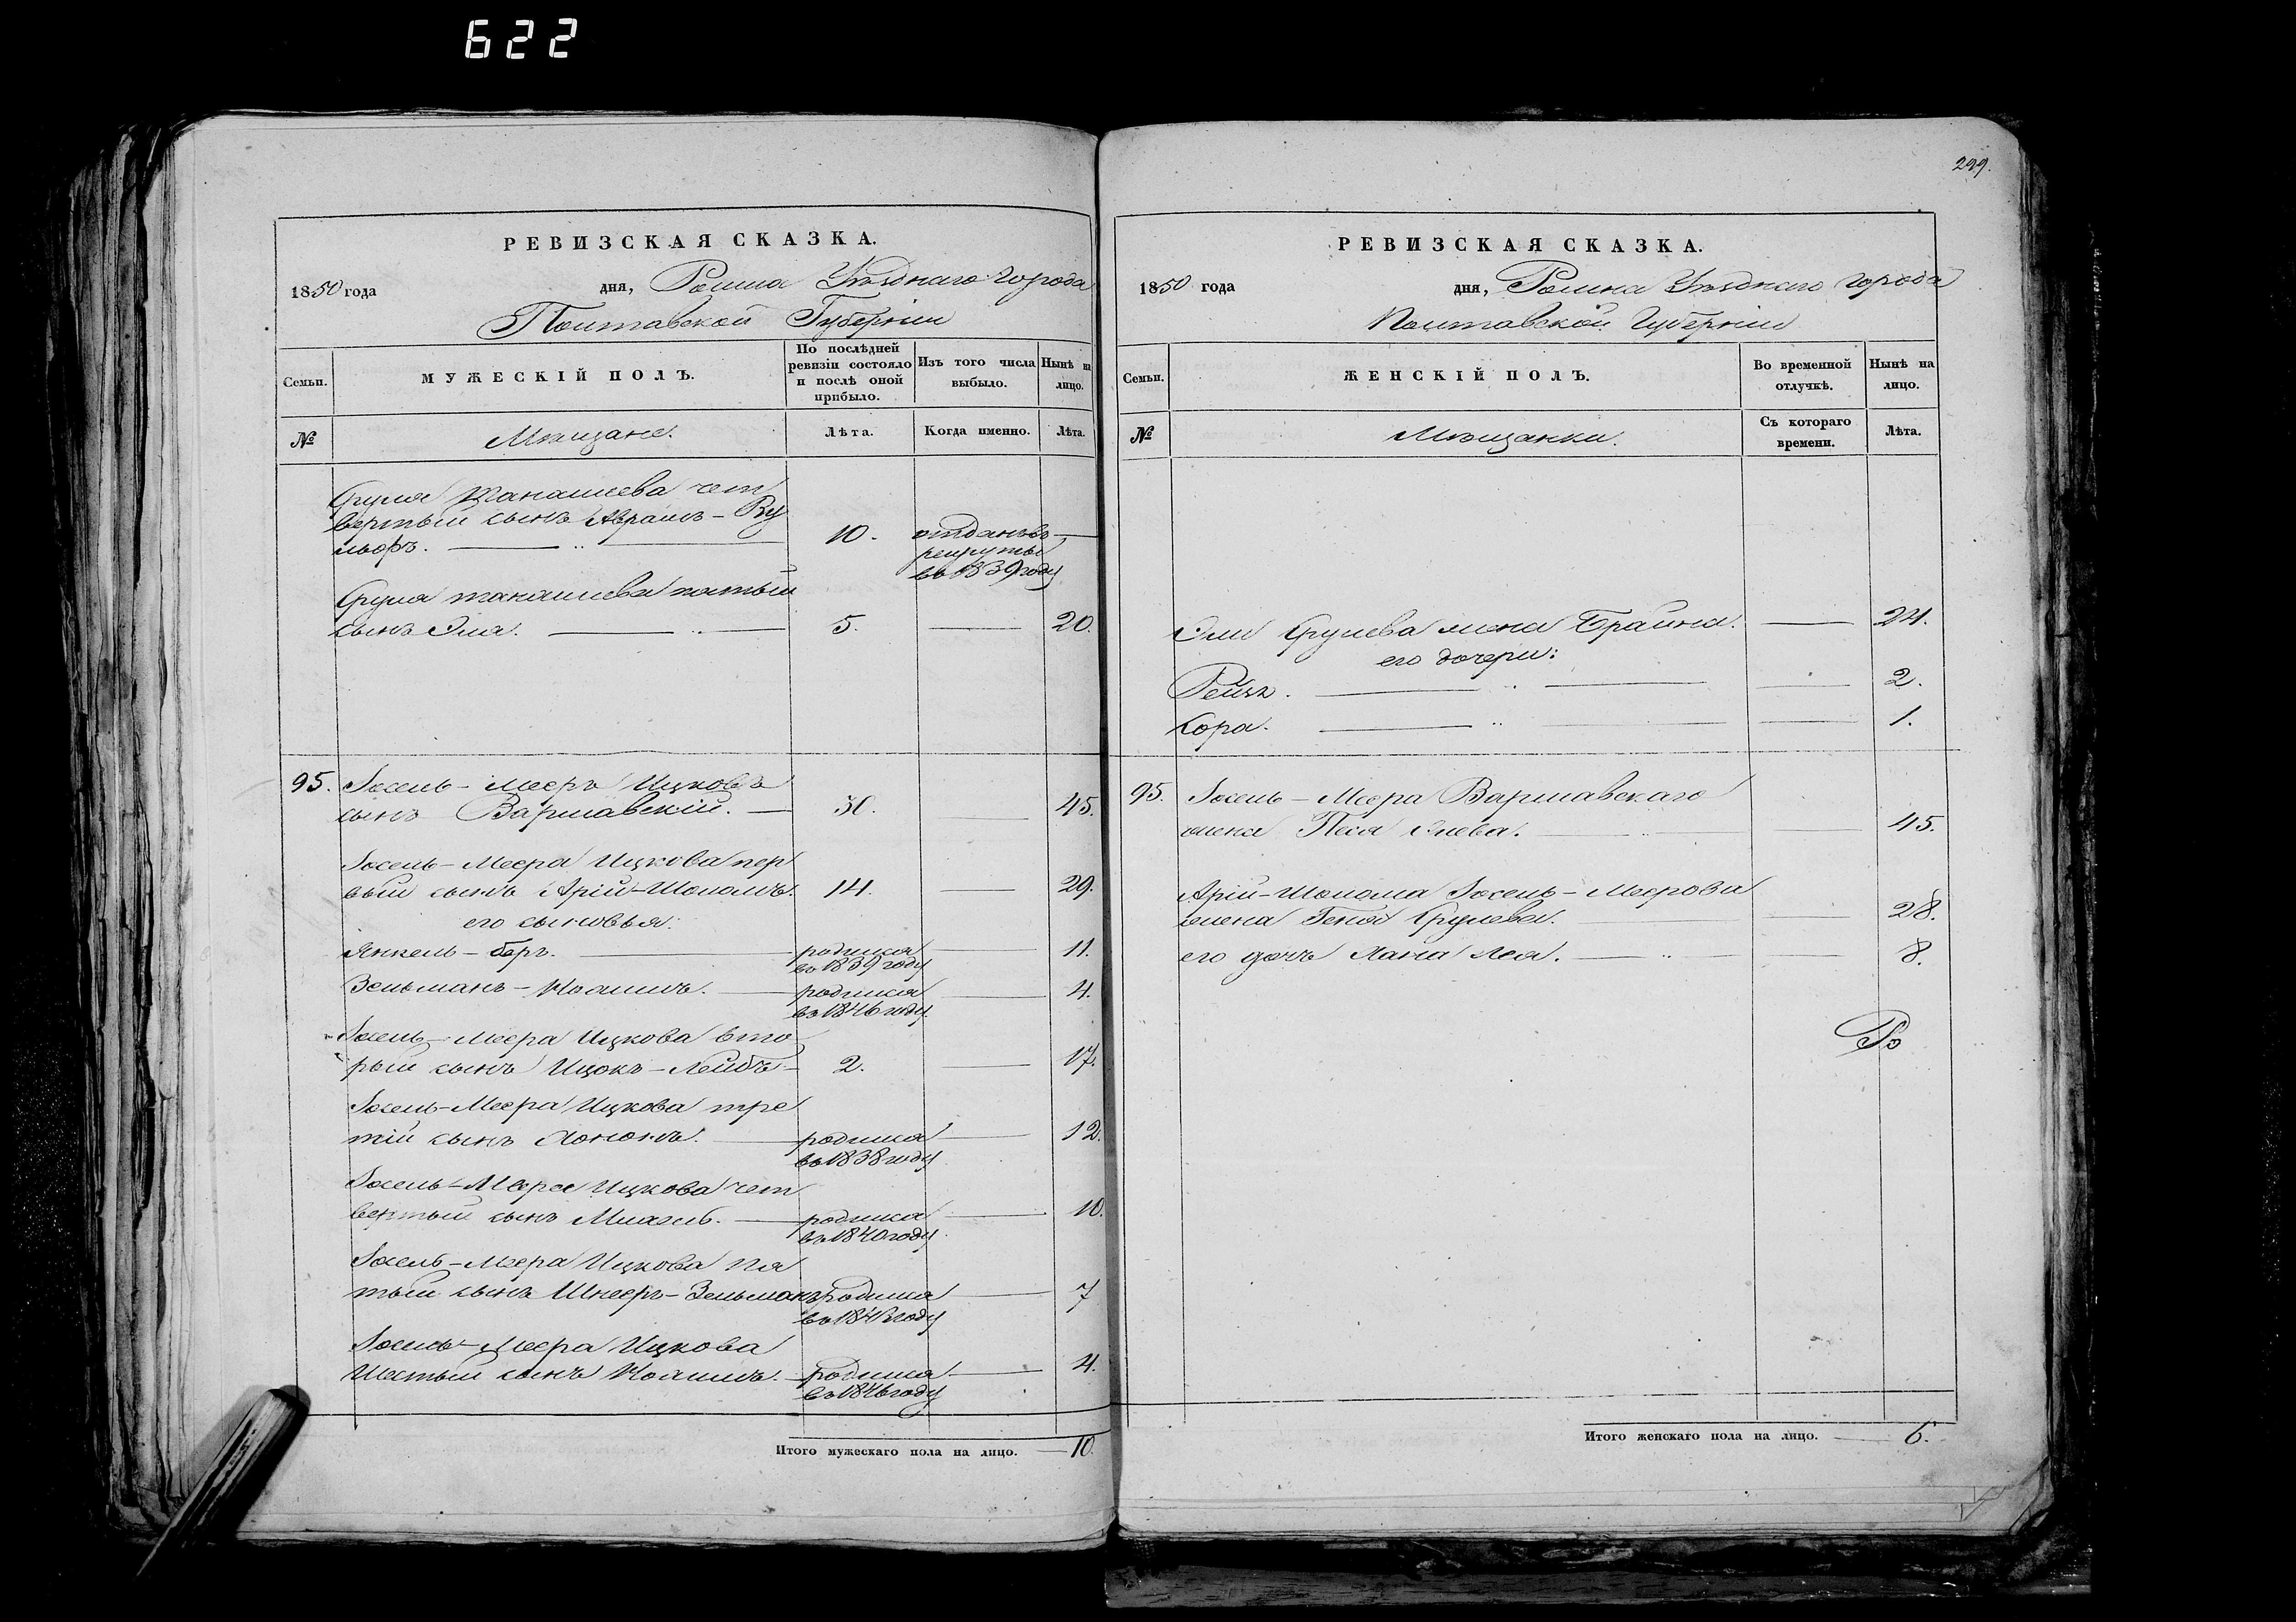 622
299.
РЕВИЗСКАЯ СКАЗКА.
1850 года дня, Ромна Уѣзднаго города
Полтавской Губерніи
Семьи.
МУЖЕСКІЙ ПОЛЪ.
По послѣдней ревизіи состояло и послѣ оной прибыло.
Изъ того числа выбыло.
Нынѣ на лицо.
№
Мѣщане.
Лѣта.
Когда именно.
Лѣта.
Сруля чет
вертый сынъ Абрамъ-Ву
льфъ. 10. отданъ въ
рекруты
въ 1839 году
Сруля пятый
сынъ Эля. 5. 20.
95. Іосель-Мееръ Ицковъ
сынъ Варшавскій. 30. 45.
Іосель-Меера Ицкова пер
вый сынъ Арій-Шоломъ. 14. 29.
его сыновья:
Янкель-беръ. родился 11.
въ 1839 году
Зельманъ- родился 4.
въ 1846 году.
Іосель-Меера Ицкова вто
рый сынъ Ицокъ-Лейбъ 2. 17.
Іосель-Меера Ицкова тре
тій сынъ родился 12.
въ 1838 году
Іосель-Меера Ицкова чет
вертый сынъ родился 10.
въ 1840 году
Іосель-Меера Ицкова пя
тый сынъ Шнееръ-Зельманъ родился 7
въ 1843 году
Іосель-Меера Ицкова
шестый сынъ родился 4.
въ 1846 году
Итого мужескаго пола на лицо. 10.
РЕВИЗСКАЯ СКАЗКА.
1850 года дня, Ромна Уѣзднаго города
Полтавской Губерніи
Семьи.
ЖЕНСКІЙ ПОЛЪ.
Во временной отлучкѣ.
Нынѣ на лицо.
№
Мѣщанки.
Съ котораго времени.
Лѣта.
Эли Срулева жена Брайна. 24.
его дочери:
2.
Сора. 1.
95. Іосель-Меера Варшавскаго
жена Песя 45.
Арій-Шолома Іосель-Меерова
жена Геня Срулева. 28.
его дочь Хана Лея. 8.
Ро
Итого женскаго пола на лицо. 6.